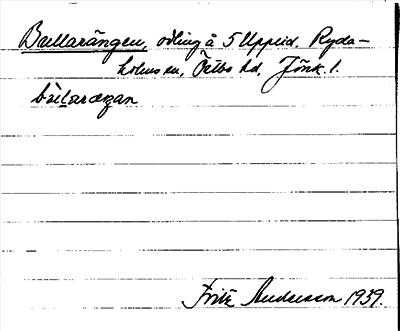 Bullarängen, odling å 5 Upplid. Ryda-
holms sn, Östbo hd, Jönk. l.
Fritz Andersson 1939.